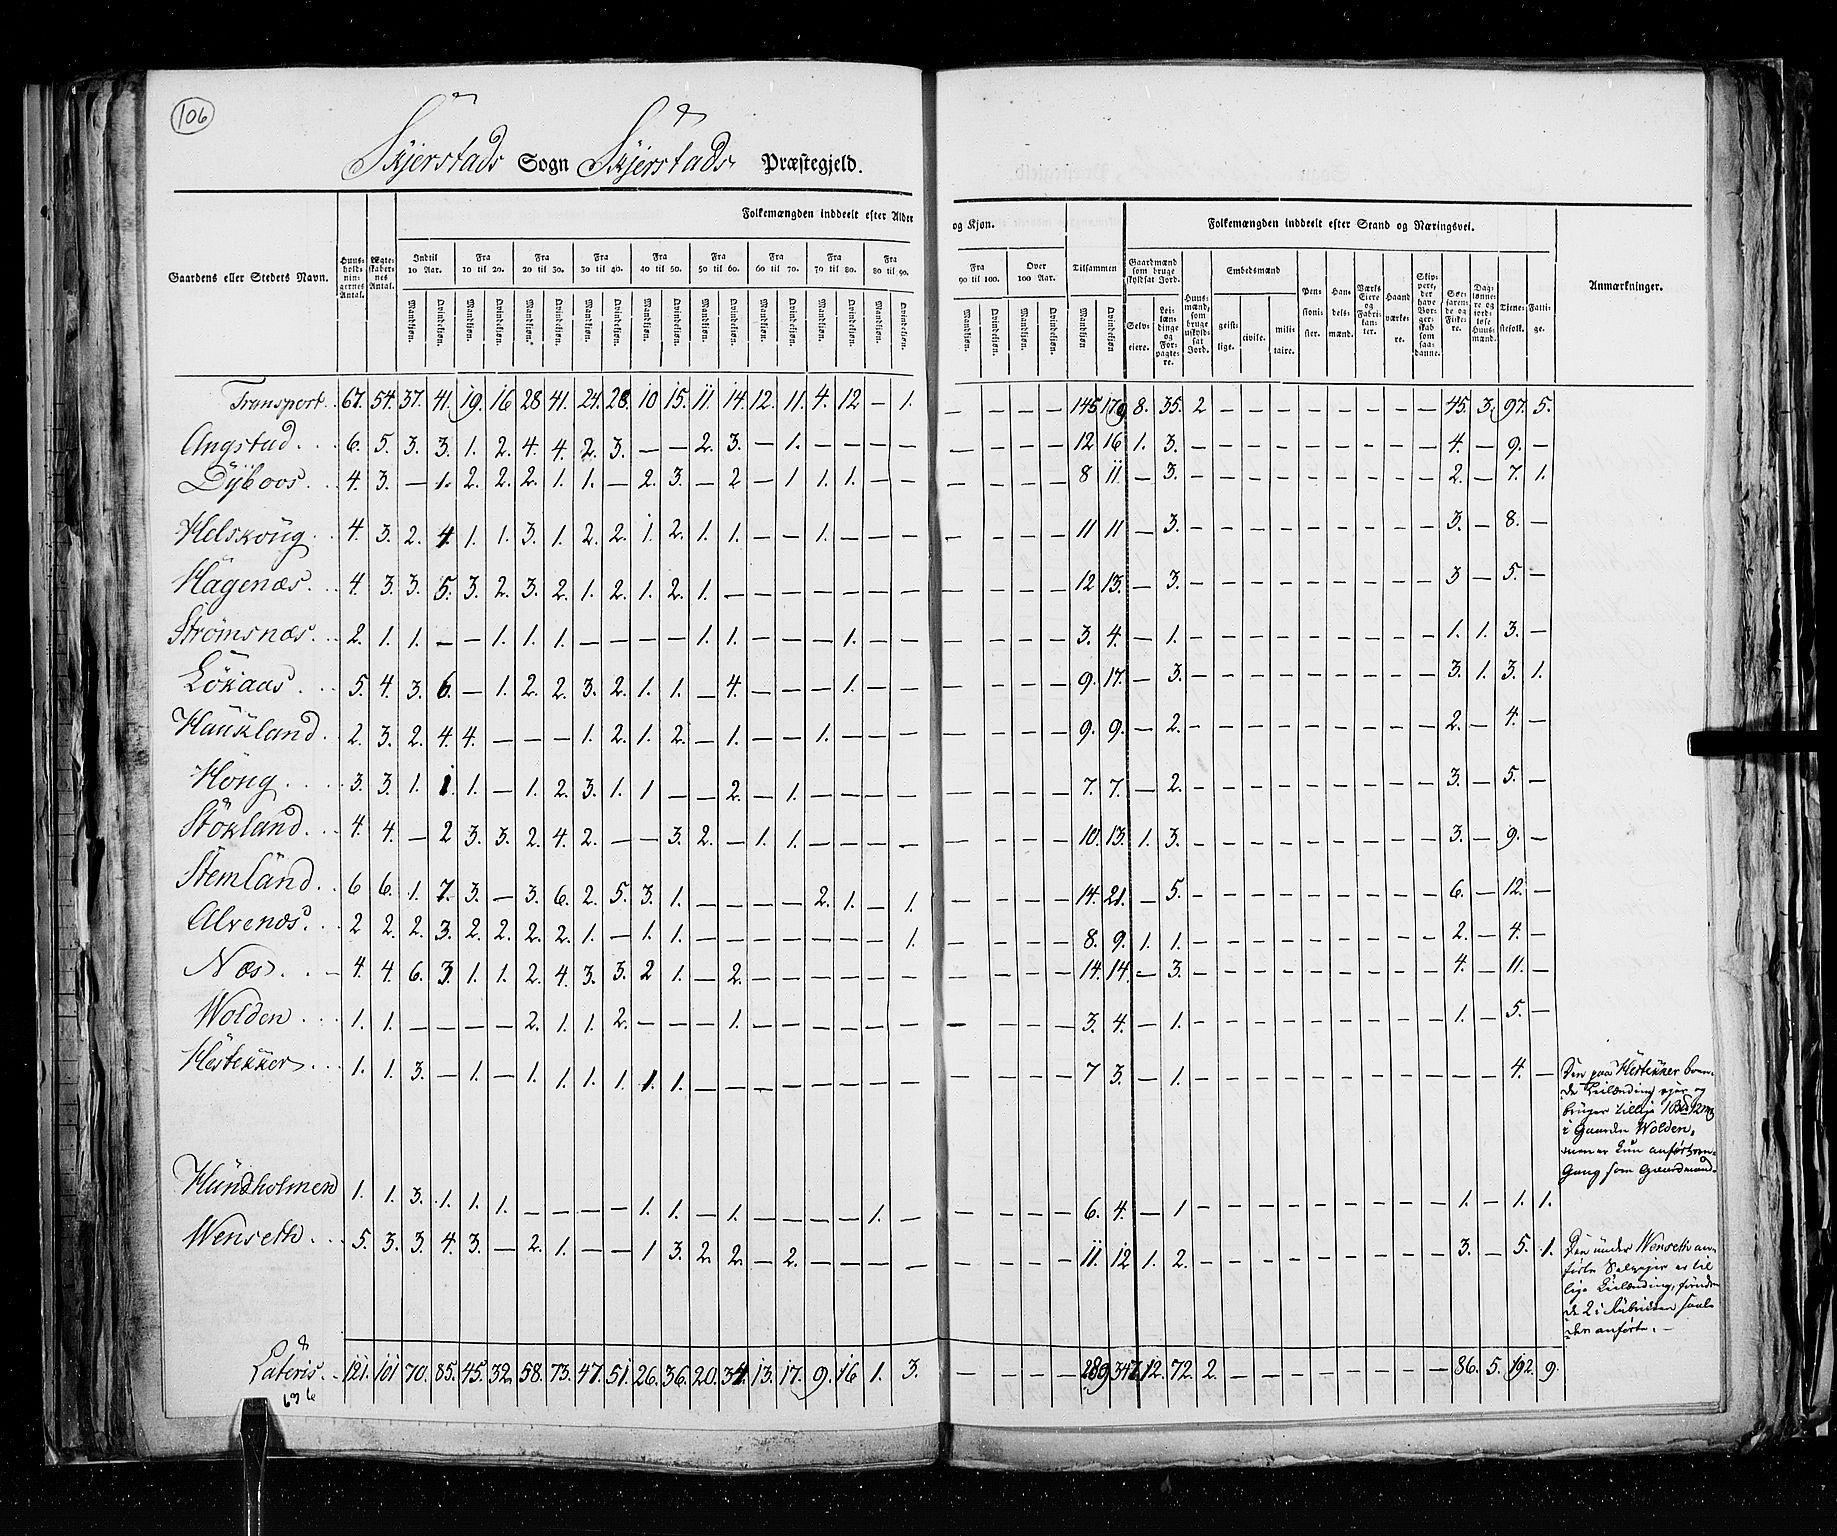 106
Skjerstads Sogn Skjerstads Præstegjeld.
Folkemængden inddeelt efter Alder og Kjøn. Folkemængden inddeelt efter Stand og Næringsvei.
Gaardens eller Stedets Navn. Huus-holdnin-gernes Antal. Ægte-skaber-nes Antal. Indtil 10 Aar. Fra 10 til 20. Fra 20 til 30. Fra 30 til 40. Fra 40 til 50. Fra 50 til 60. Fra 60 til 70. Fra 70 til 80. Fra 80 til 90. Fra 90 til 100. Over 100 Aar. Tilsammen Gaardmænd som bruge skyldsat Jord. Huus-mænd, som bruge uskyld-sat Jord. Embedsmænd Pen-sioni-ster. Han-dels-mænd. Værks-Eiere og Fabri-kan-ter. Haand-værke-re. Skip-pere, der have Bor-ger-skab som saa-danne. Søe-faren-de og Fiske-re. Dag-lønne-re og jord-løse Huus-mænd. Tjene-stefolk. Fatti-ge. Anmærkninger.
Mandkjøn. Qvindekjøn. Selv-eiere. Lei-læn-dinge og For-pagte-re. geist-lige. civile. mili-taire.
Transport. 67. 54. 37. 41. 19. 16 28 41. 24. 28. 10 15. 11. 14. 12. 11. 4. 12 — 1. — — — — 145 179 8. 35. 2 — — — — — — — — 45. 3. 97. 5.
Angstad. 6. 5. 3. 3. 1. 2. 4. 4. 2. 3. — — 2. 3. — 1. — — — — — — — — 12 16 1. 3. — — — — — — — — — 4. — 9. —
Dybvos. 4. 3. — 1. 2. 2. 2. 1. 1. — 2. 3. — 2 — 1 1. 1. — — — — — — 8 11. — 3. — — — — — — — — — 2. — 7. 1.
Helskong. 4. 3. 2. 4. 1. 1. 3. 1. 2. 2. 1. 2. 1. 1. — — 1. — — — — — — — 11 11 — 3. — — — — — — — — — 3. — 8. —
Hagenæs. 4. 3. 3. 5. 3. 2. 3. 2. 1. 2. 1. 2. 1. — — — — — — — — — — — 12 13. — 3. — — — — — — — — — 3 — 5. —
Strømsnæs. 2. 1. 1. — — 1. 1. 1. — — — — 1. 1. — — — 1. — — — — — — 3. 4. — 1. — — — — — — — — — 1. 1. 3. —
Lökaas. 5. 4. 3. 6. — 1. 2. 2. 3. 2. 1. 1. — 4. — — — 1. — — — — — — 9. 17. — 3. — — — — — — — — — 3. 1. 3. 1.
Haukland. 2. 3. 2. 4. 4. — — — 1. 2. 1. 2. — 1. — — 1. — — — — — — — 9. 9. — 2. — — — — — — — — — 2. — 4. —
Höng. 3. 3. 1. 1. 1. — 1. 2. 3. 1. 1 — — 2. — 1. — — — — — — — — 7. 7. — 2. — — — — — — — — — 3. — 5. —
Stökland. 4. 4. — 2 3. 3. 2. 4. 2. — — 3. 2. — 1. 1. — — — — — — — — 10. 13. 1. 3. — — — — — — — — — 3. — 9. —
Stemland. 6 6. 1. 7. 3. — 3. 6. 2. 5. 3. 1. — — — — 2. 1. — 1. — — — — 14. 21. — 5. — — — — — — — — — 6. — 12. —
Alvenæs. 2 2. 2. 3. 2. 2. 2. 2. 1. — 1. 1. — — — — — — — 1. — — — — 8. 9. 1. 1. — — — — — — — — — 2. — 4. —
Næs. 4. 4. 6. 3 1. 1. 2. 4. 3. 3. 2 1. — 2. — — — — — — — — — — 14. 14. — 3. — — — — — — — — — 4. — 11. —
Wolden. 1. 1. — — — — 2. 1. 1. 2. — — — 1. — — — — — — — — — — 3. 4. — 1. — — — — — — — — — 1. — 5. —
Hestekker. 1. 1. 3. — 1. — 1. 1. 1. 1. 1. 1. — — — — — — — — — — — — 7 3. — 1. — — — — — — — — — — — 4. —
Den paa Hestekker boen-
de Leilænding ejer og
bruger tillige
i Gaarden Wolden,
men er kun anført en
Gang som Gaardmand.
Hundholmen 1. 1. 3. 1. 1. 1. — — — — 1. 1. — 1. — — — — 1. — — — — — 6. 4. — 1 — — — — — — — — — 1. — 1. 1.
Wenseth. 5. 3. 3. 4. 3. — 2. 1. — — 1 3. 2. 2. — 2. — — — — — — — — 11. 12 1. 2. — — — — — — — — — 3. — 5. 1.
Den under Wenseth an-
førte Selvejer er til
lige Leilænding,
de 2 i Rubrikken saale
des anførte. —
Lateris. 121. 101 70. 85. 45. 32. 58. 73. 47. 51. 26. 36. 20. 34. 13. 17. 9. 16 1. 3. — — — — 289 347. 12. 72. 2. — — — — — — — — 86. 5. 192. 9.
636